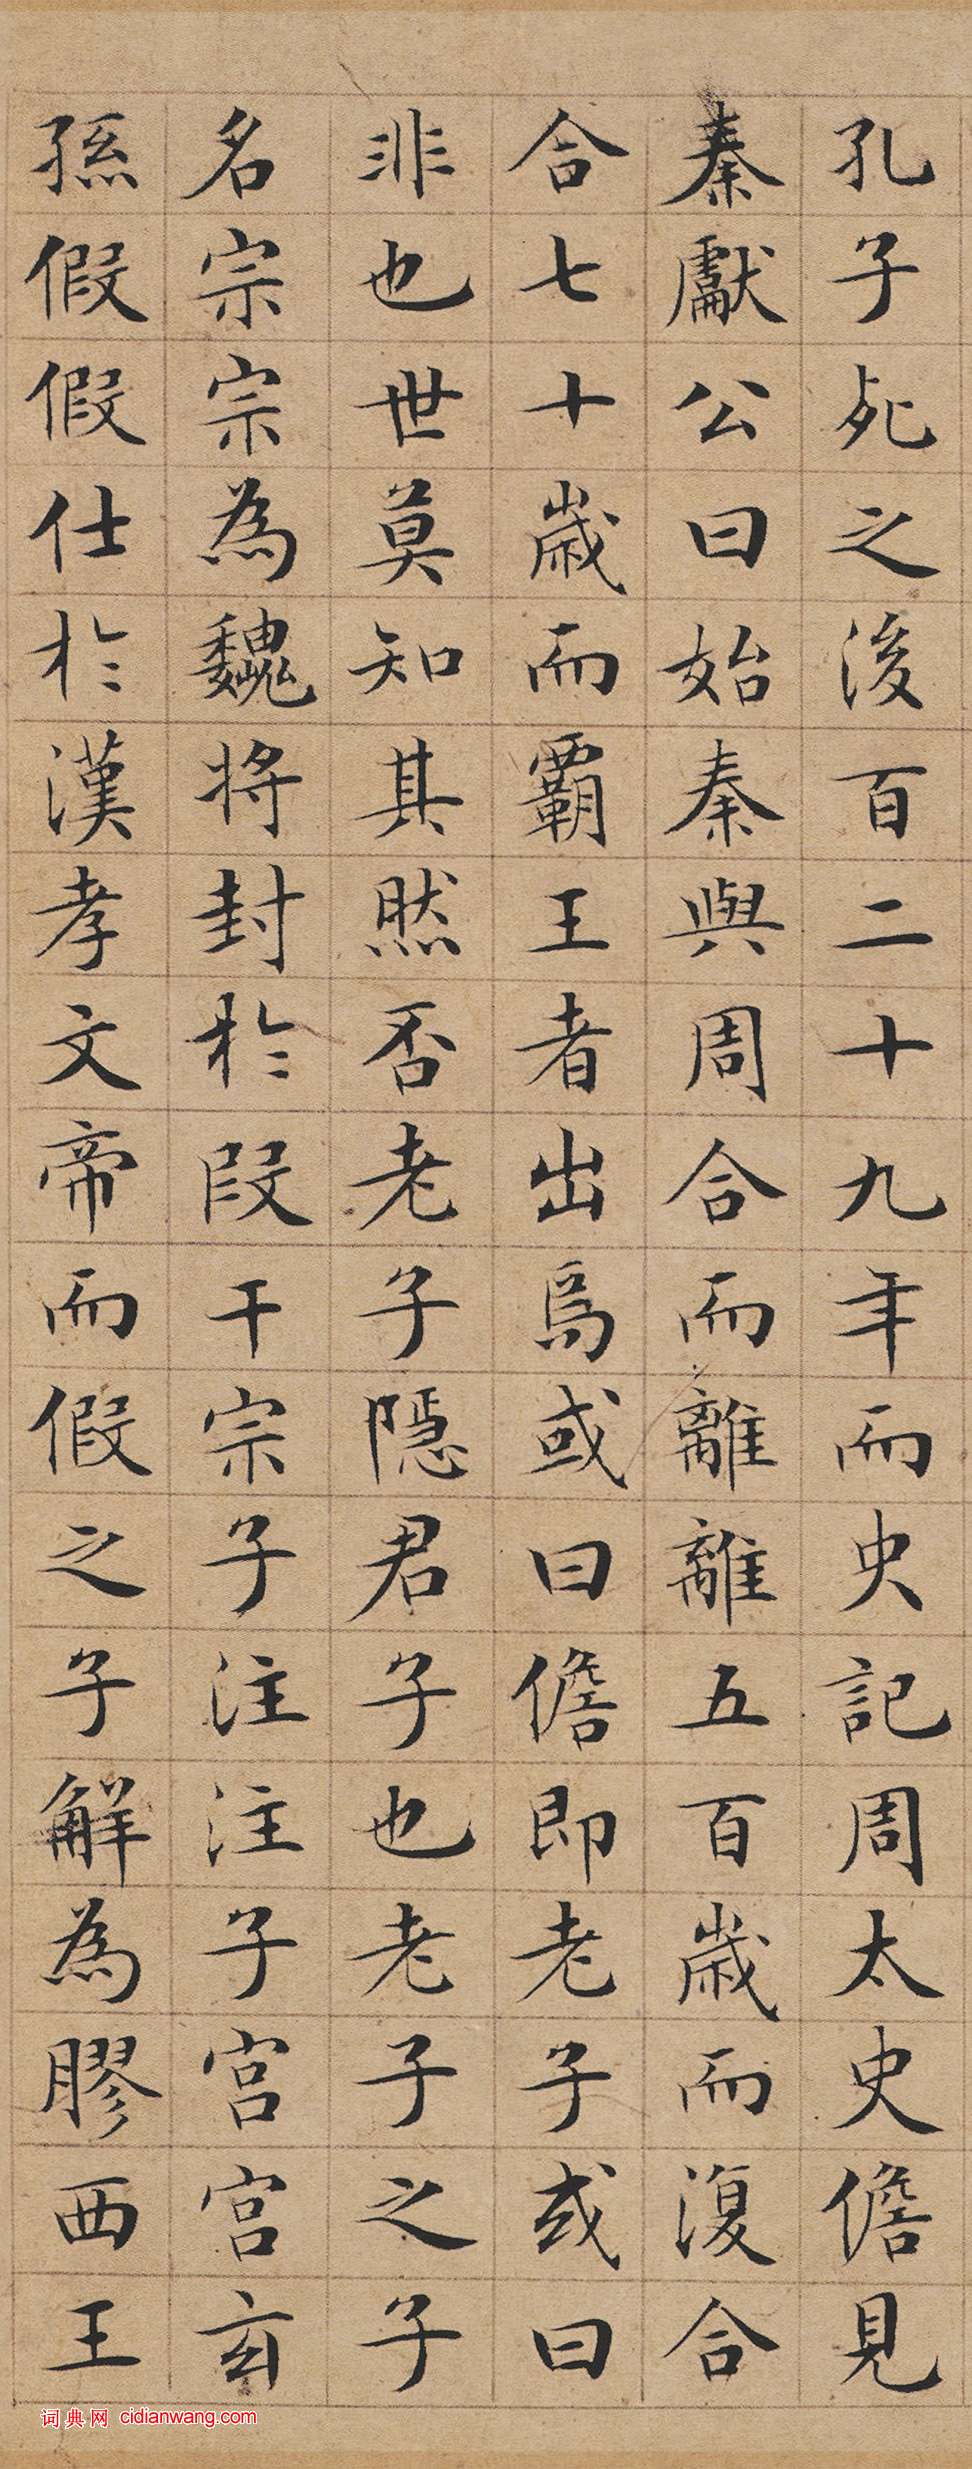 孔子死之後百二十九年而史記周太史儋見
秦獻公曰始秦與周合而離離五百歲而復合
合七十歲而霸王者出焉或曰儋即老子或曰
非也世莫知其然否老子隱君子也老子之子
名宗宗為魏將封於段干宗子注注子宮宮玄
孫假假仕於漢孝文帝而假之子解為膠西王
词典网 cidianwang.com